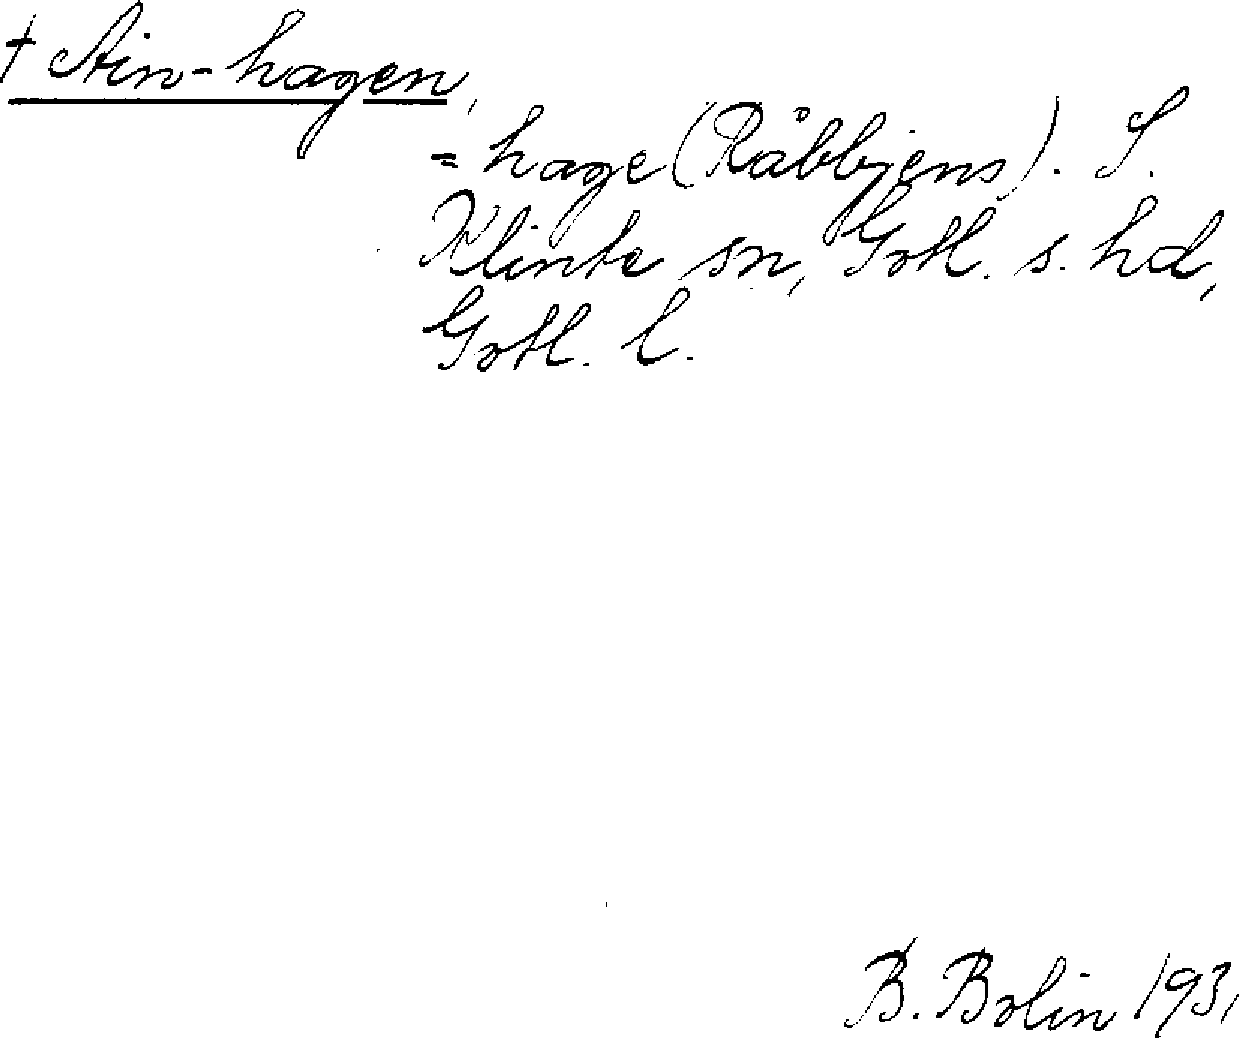 † Ain-hagen,
= hage (Räbbjens). S.
Klinte sn, Gotl. s. hd,
Gotl. l.
B. Bolin 1931